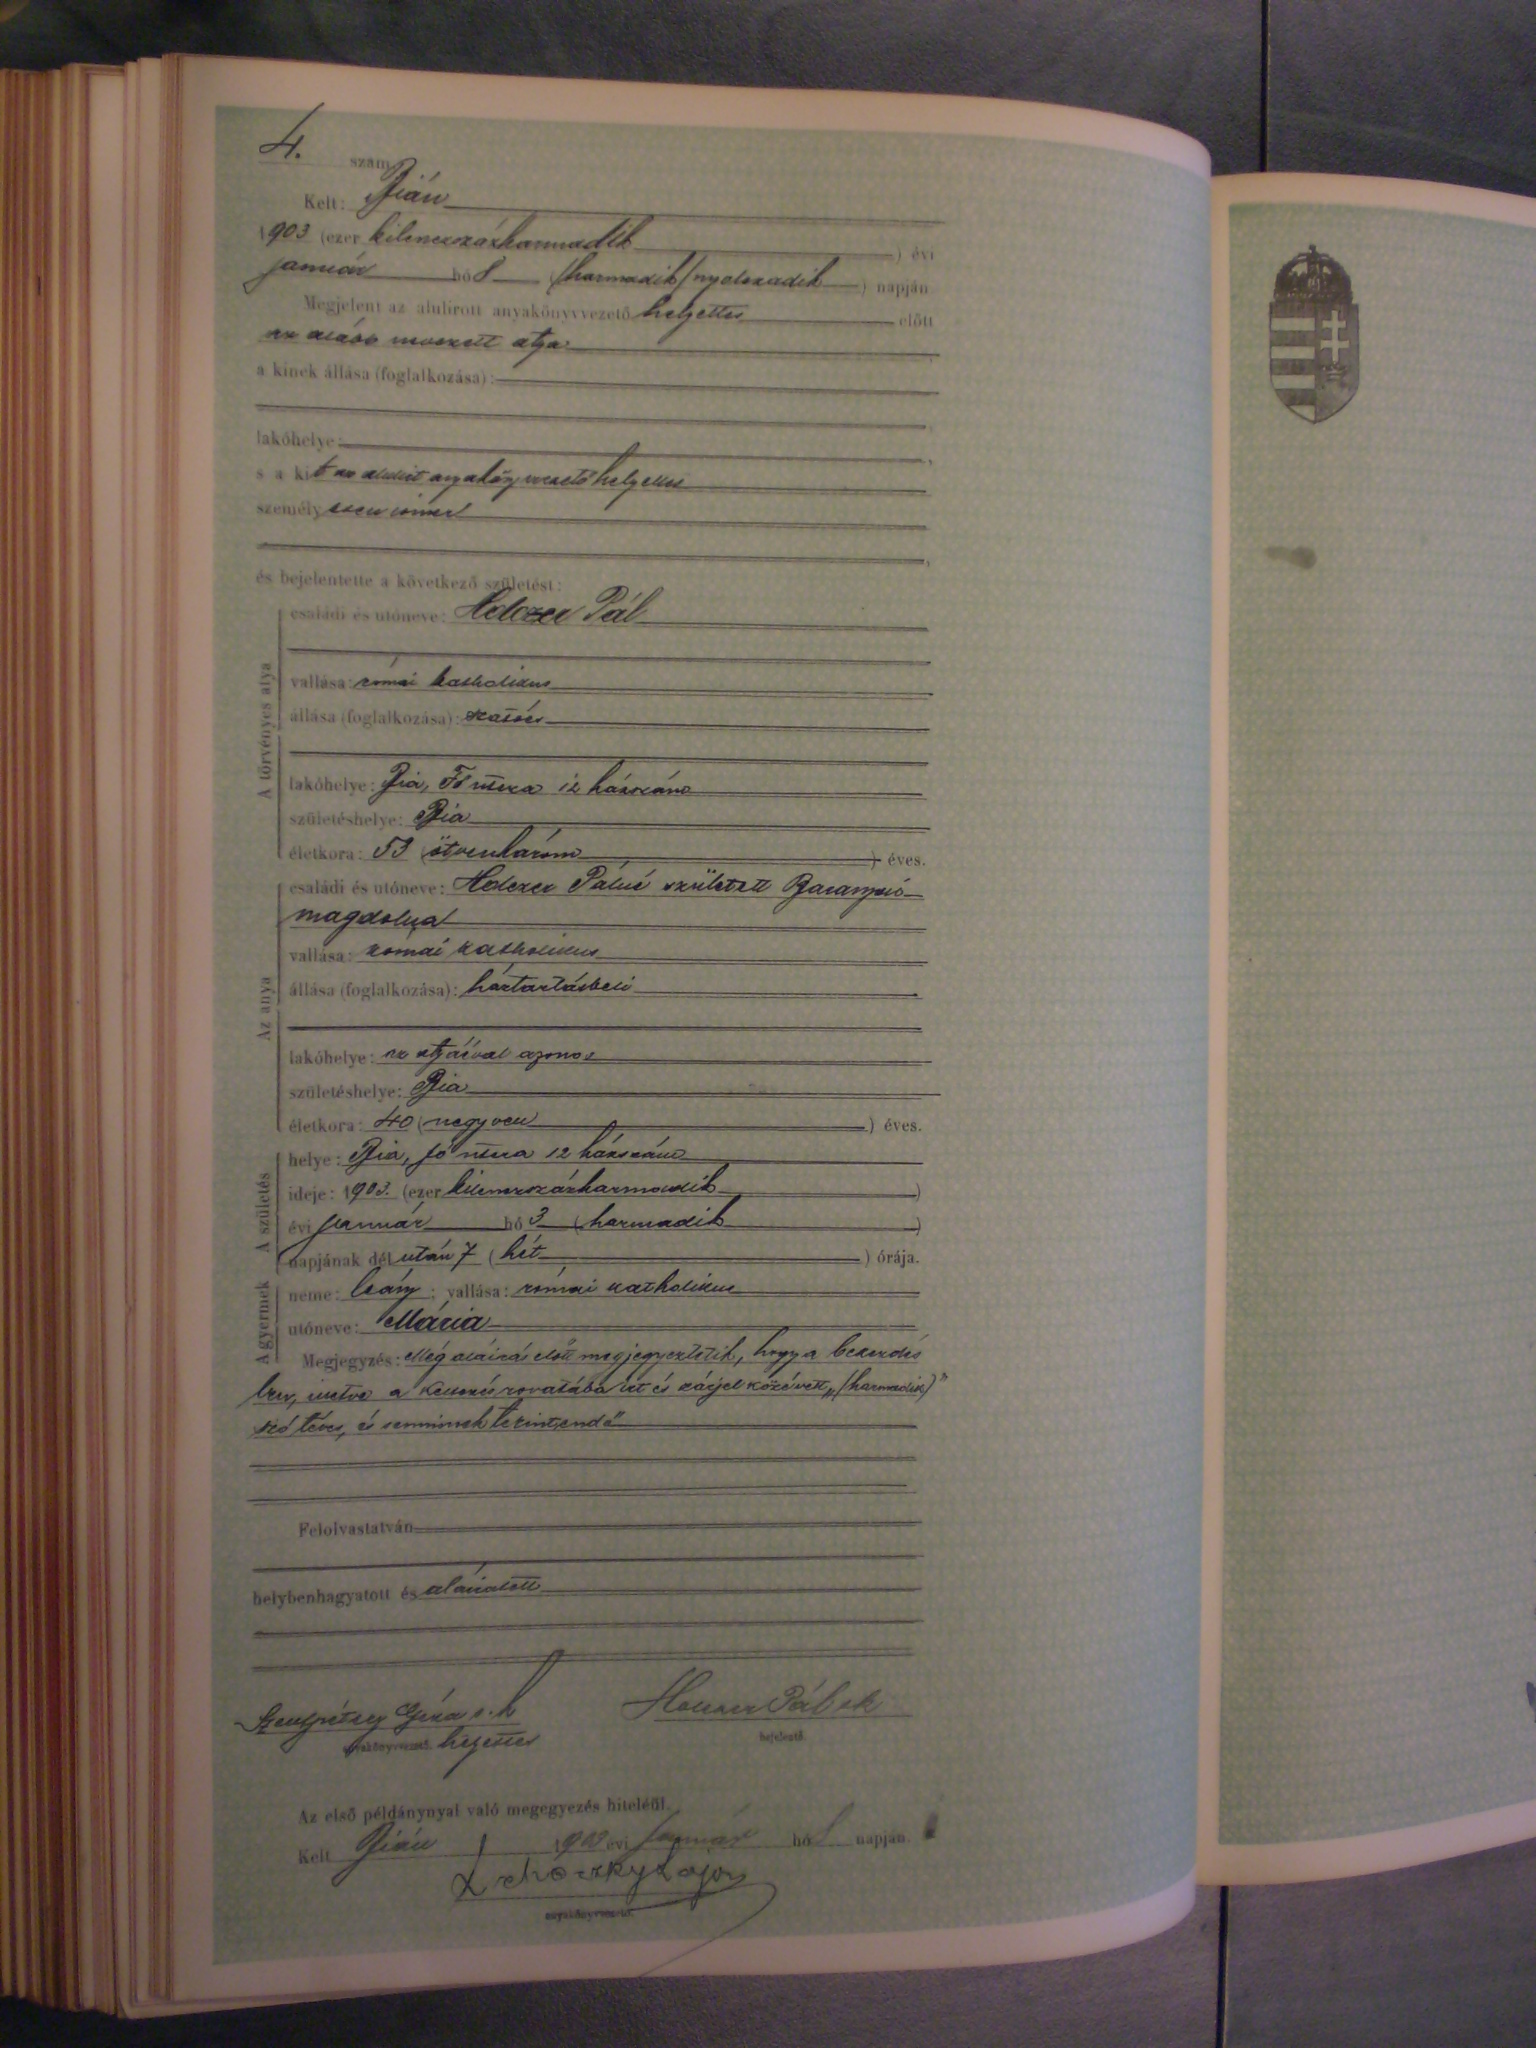 4. szám
Kelt: Bián
1903 (ezer kilenczszázharmadik ) évi
január hó 8 (harmadik/nyolczadik ) napján
Megjelent az alulirott anyakönyvvezető helyettes előtt
az alább nevezett atya
a kinek állása (foglalkozása):
lakóhelye:
s a kit az alulírt anyakönyvvezető helyettes
személyesen ismer
és bejelentette a következő születést:
A törvényes atya
családi és utóneve: Holczer Pál
vallása: római katholikus
állása (foglalkozása): szatócs
lakóhelye: Bia, Fő utcza 12 házszám
születéshelye: Bia
életkora: 53 (ötvenhárom ) éves.
Az anya
családi és utóneve: Holczer Pálné született Baranyai
Magdolna
vallása: római katholikus
állása (foglalkozása): háztartásbeli
lakóhelye: az atyáéval azonos
születéshelye: Bia
életkora: 40 (negyven ) éves.
A születés
helye: Bia, fő utcza 12 házszám
ideje: 1903. (ezer kilenczszázharmadik )
évi január hó 3 (harmadik )
napjának dél után 7 (hét ) órája.
A gyermek
neme: leány; vallása: római katholikus
utóneve: Mária
Megjegyzés: Még aláirás előtt megjegyeztetik, hogy a bekezdés
ben, illetve a rovatába irt és zárjel közé vett „(harmadik)”
szó téves, és semminek tekintendő"
Felolvastatván
helybenhagyatott és aláiratott
Szentpétery Géza s. k Pál sk
anyakönyvvezető helyettes bejelentő.
Az első példánynyal való megegyezés hiteléül.
Kelt Bián 1903 évi január hó 8 napján.
Lehoczky Lajos
anyakönyvvezető.